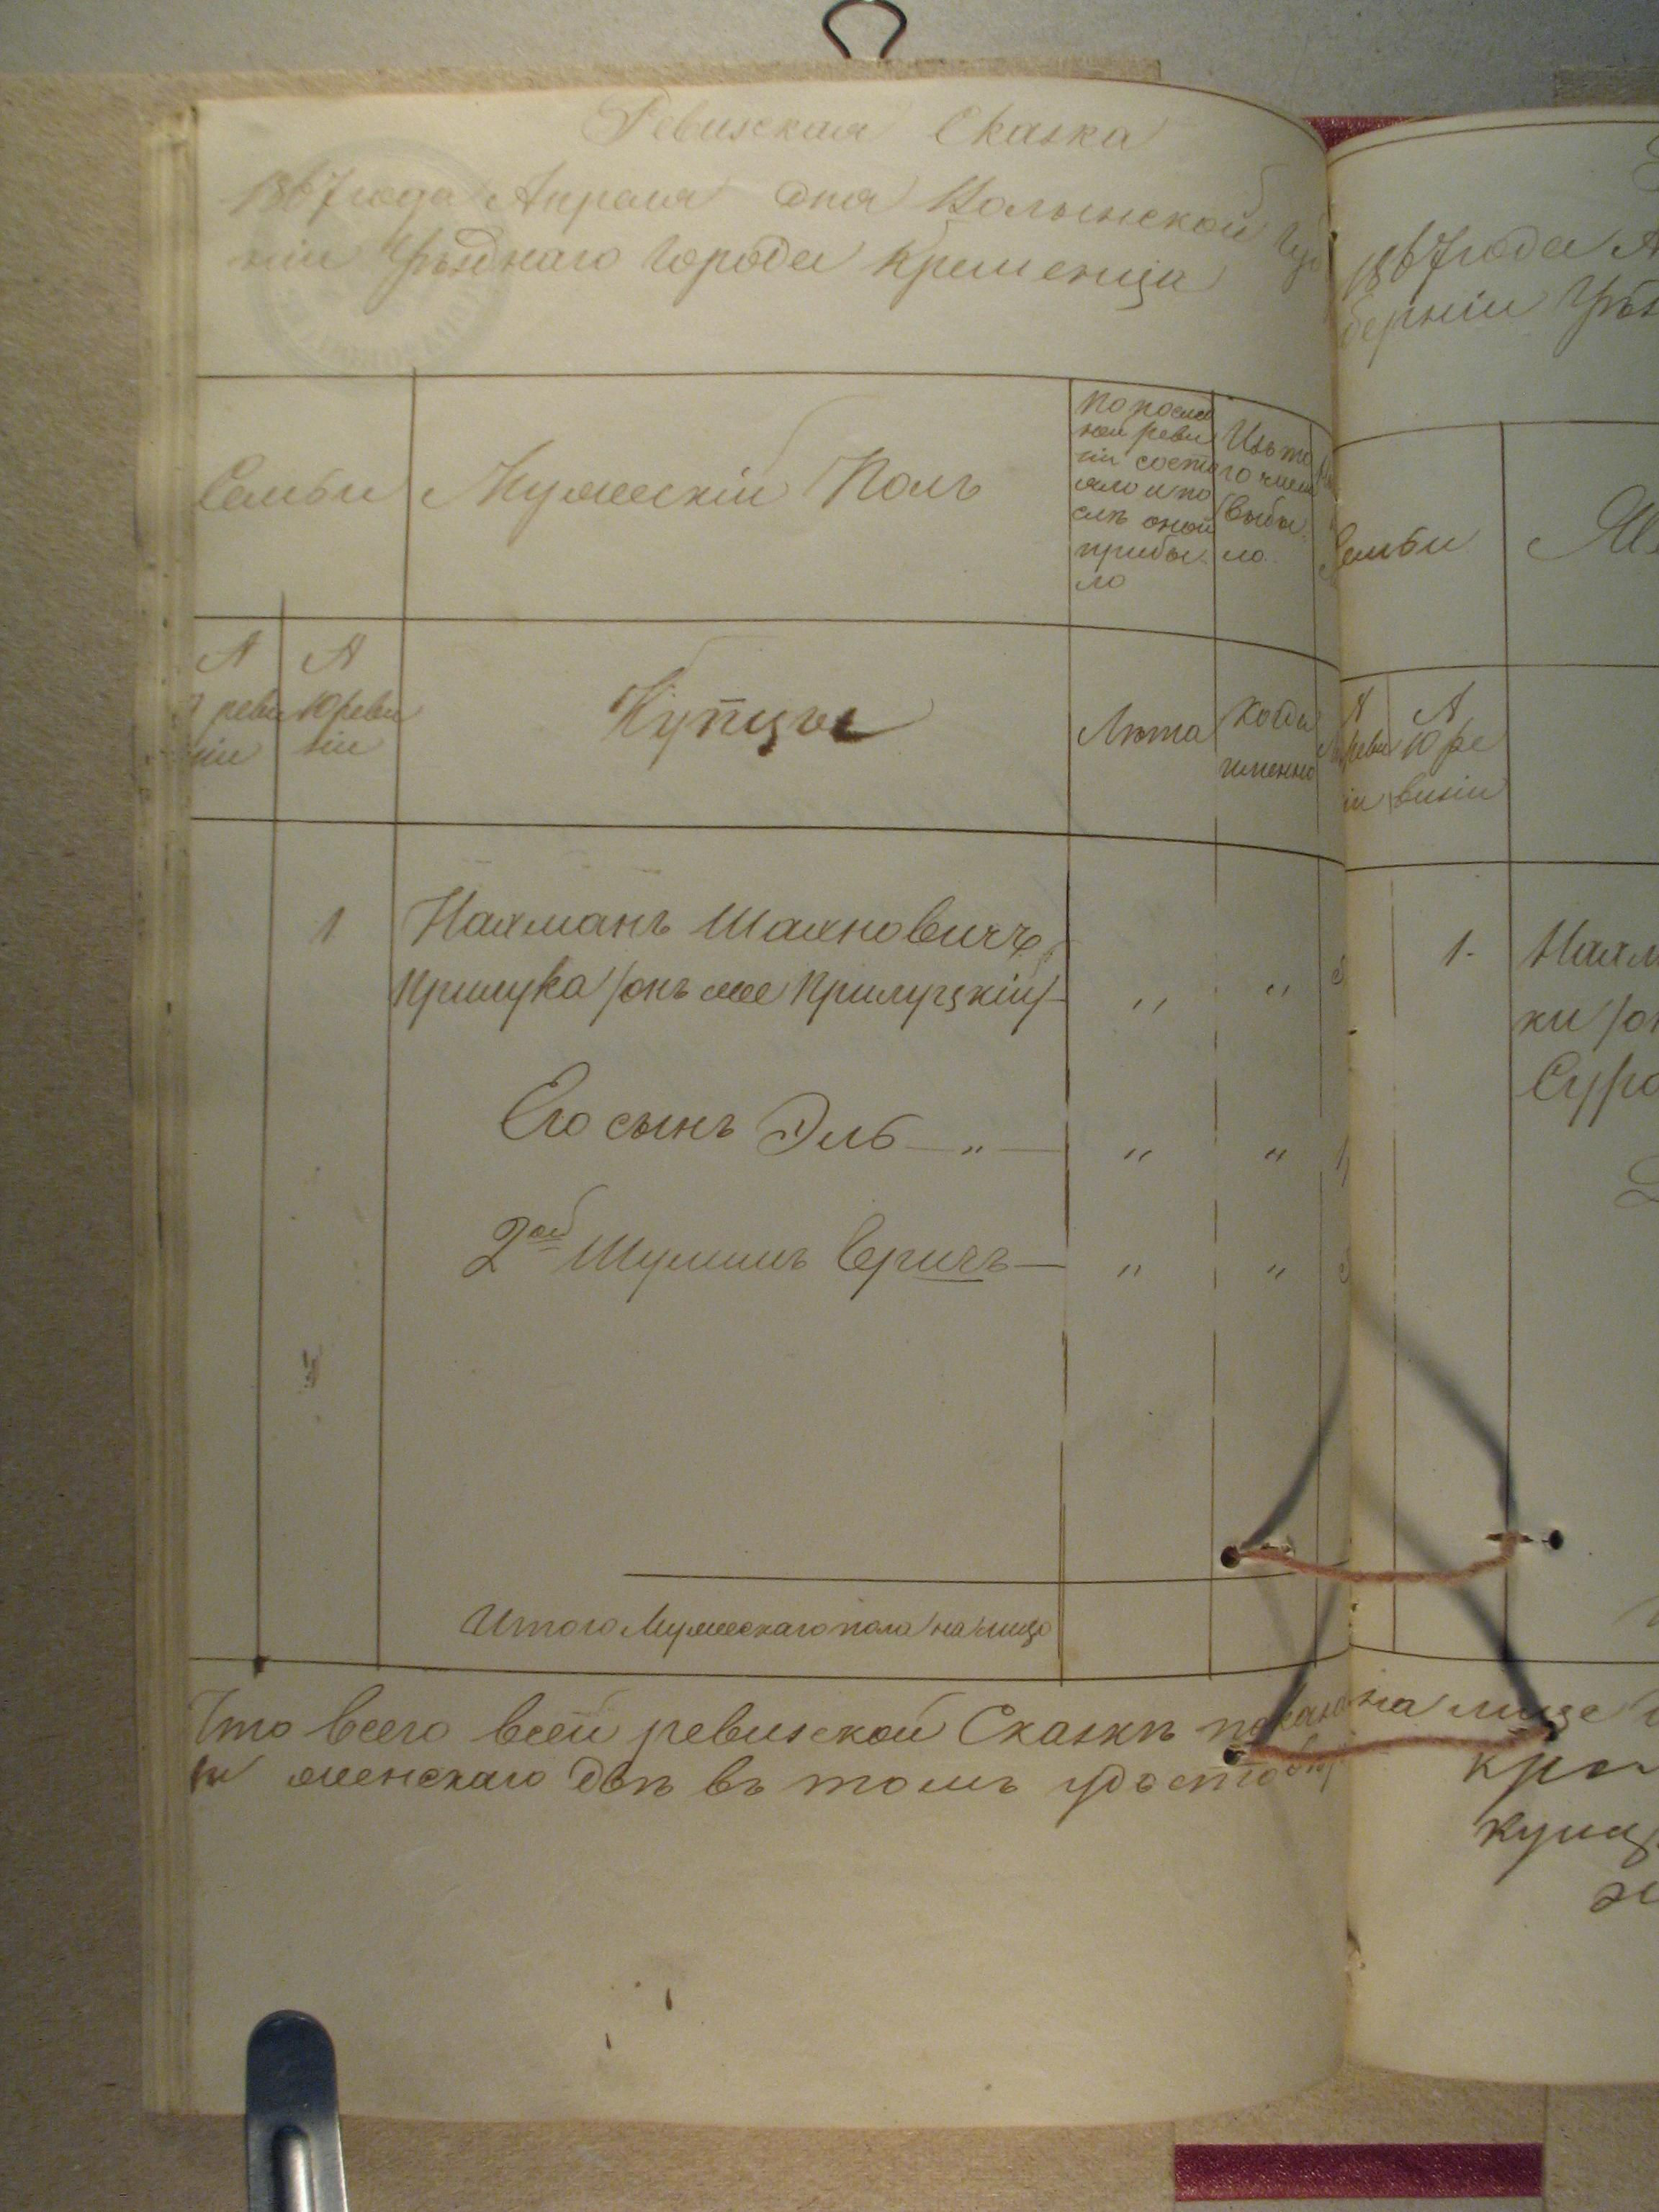 Ревизская Сказка
1867 года Апреля дня Волынской Гу
нiи Уѣзднаго Города Кременца
Семьи
Мужескiй Полъ
По послѣд
ней реви
зiи состо
яло и по
слѣ оной
прибы
ло
Изъ то
го числа
выбы
ло.
№
9 реви
зiи
№
10 реви
зiи
Купцы
Лѣта
Когда
именно
1
Нахманъ Шахновичъ
Прилука /онъ же Прилуцкiй/ - " "
Его сынъ Эль — " — " "
2ой Шулимъ Беричъ — " "
Итого Мужескаго пола на лицо
Что всего всей ревизской Сказкѣ показано на лице
и женскаго двѣ въ томъ удостовѣр
1867 года А
бернiи Уѣз
Семьи
№
реви
зiи
№
10 ре
визiи
1.
Нахм
ки /он
Суро
купц